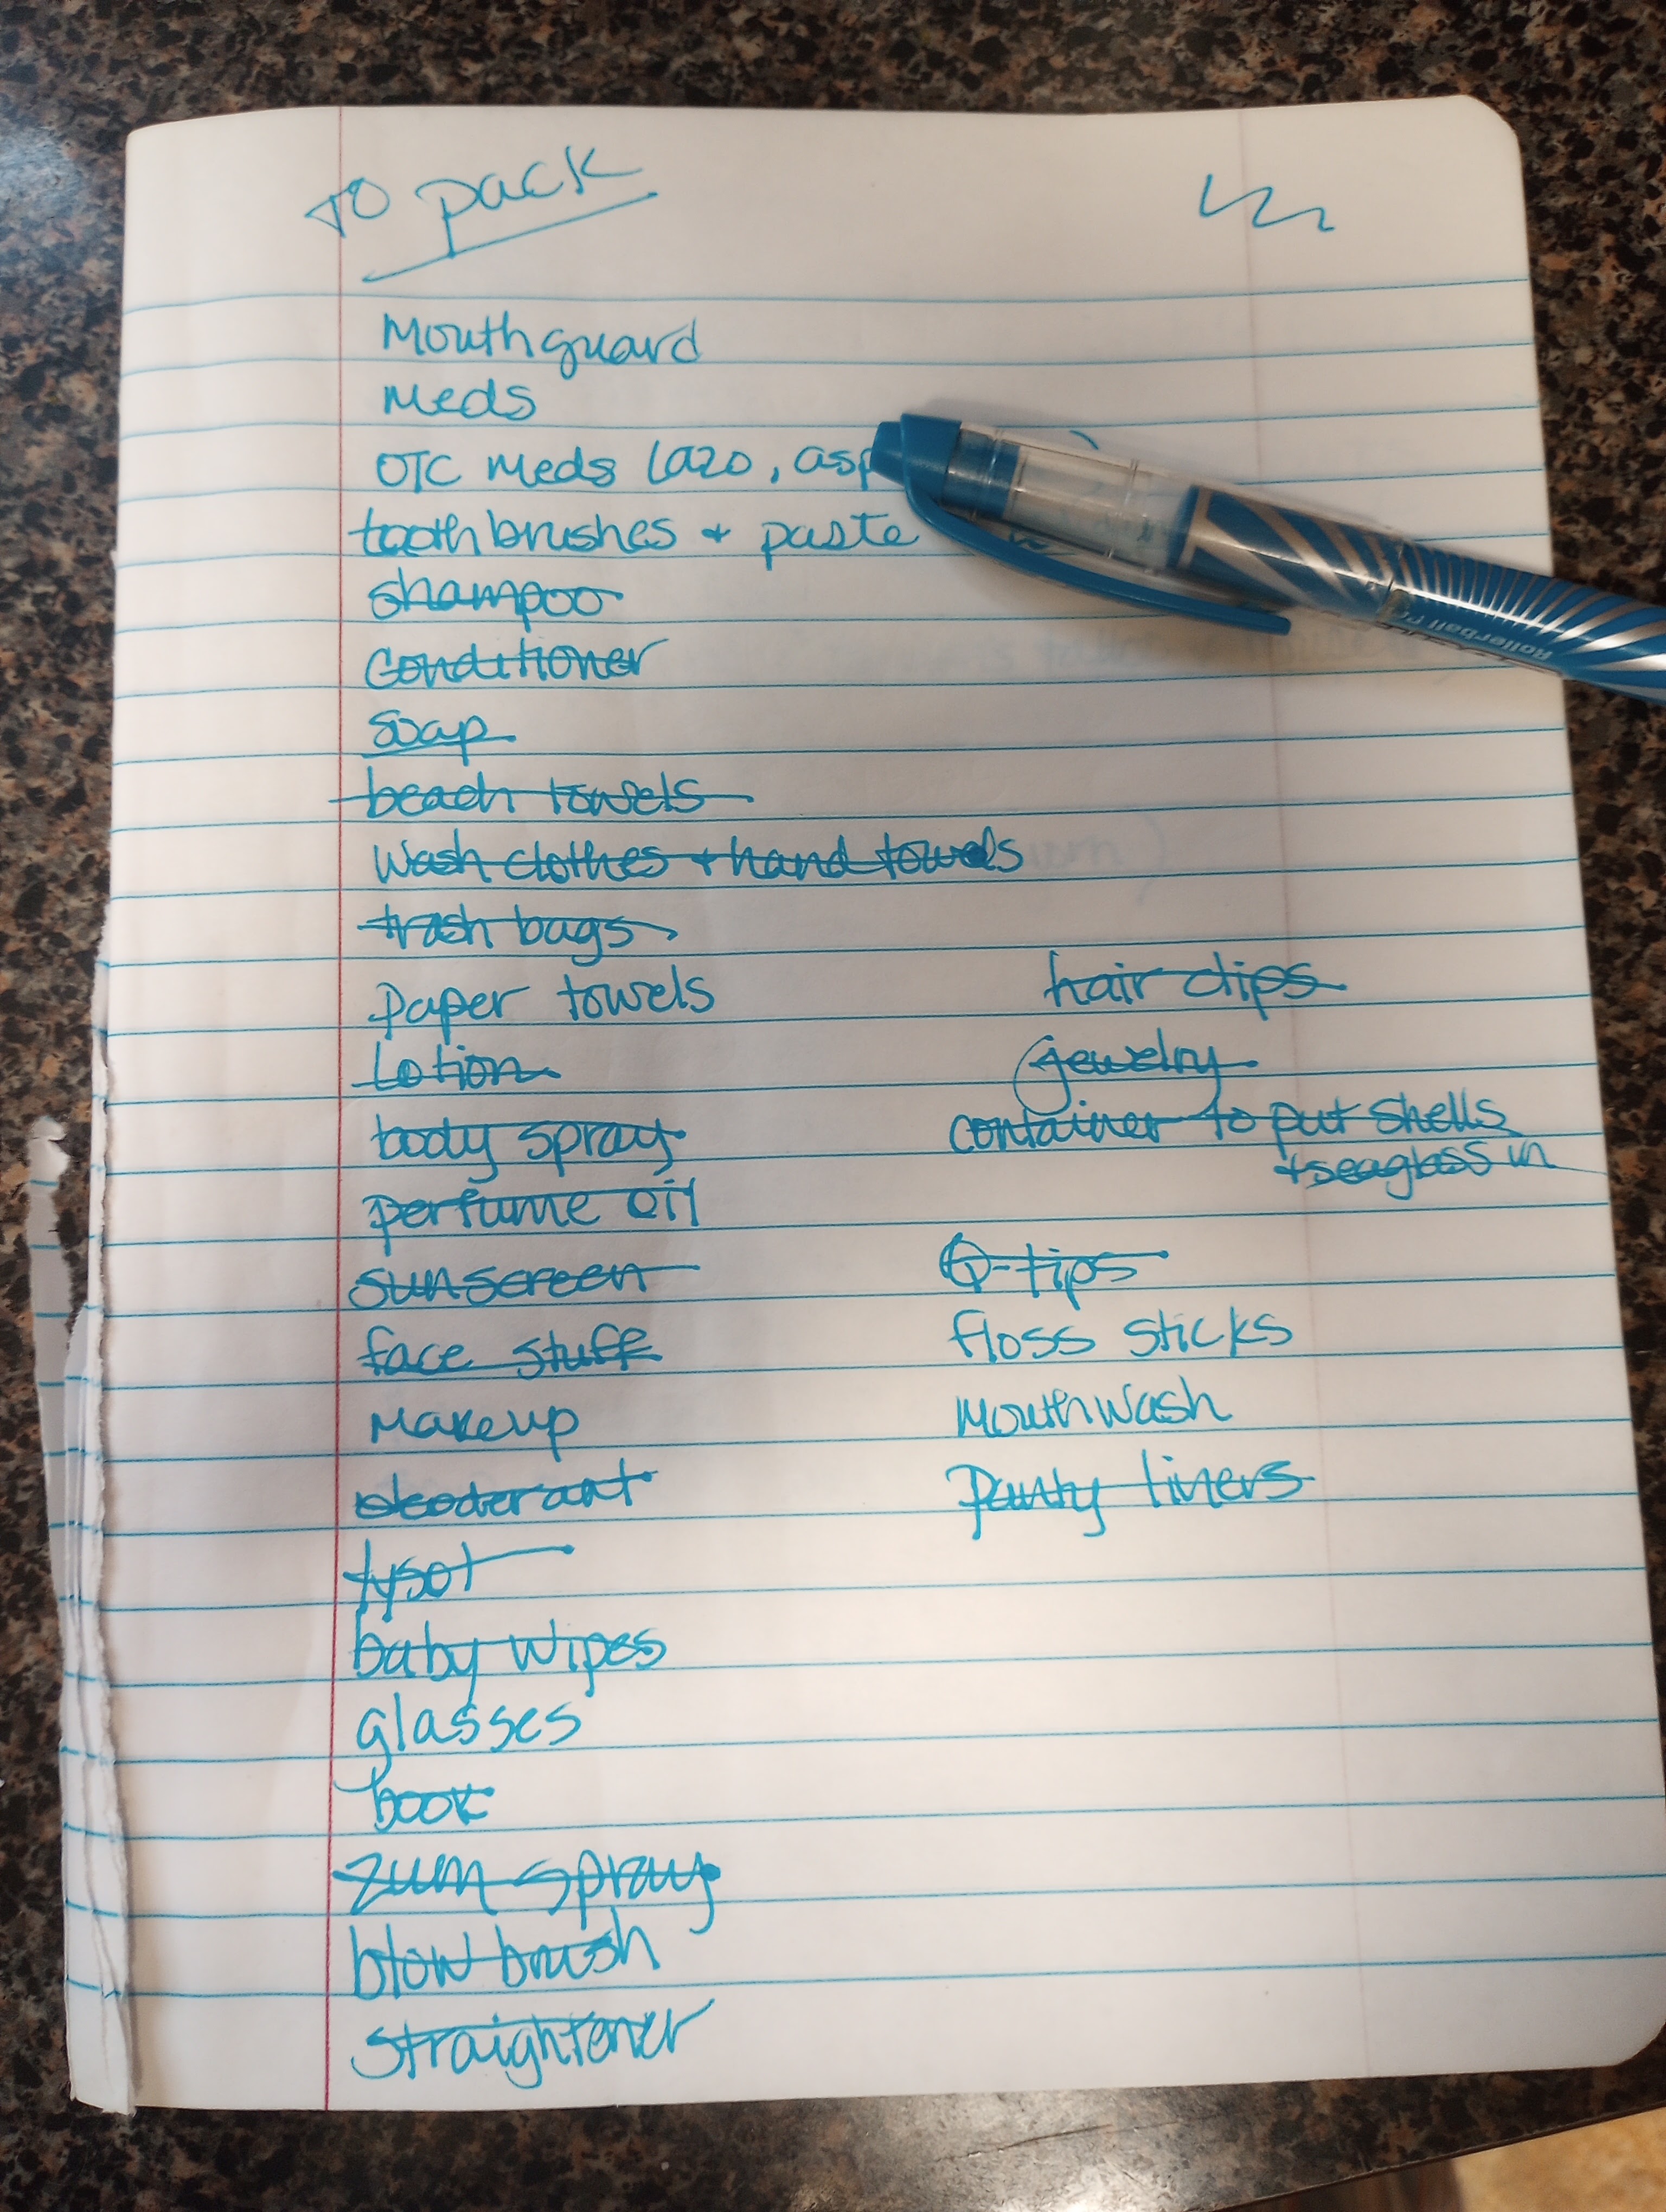 TO pack
Mouthguard
Meds
OTC Meds (azo, asp
toothbrushes + paste
shampoo
Conditioner
Soap
beach towels
Wash clothes + hand towels
trash bags
Paper towels
Lotion
body spray
perfume oil
sunscreen
face stuff
Makeup
deoderant
lysol
baby wipes
glasses
book
zum spray
blow brush
straightener
hair clips
jewelry
container to put shells
+ seaglass in
Q-tips
floss sticks
Mouthwash
Panty liners
Rollerball